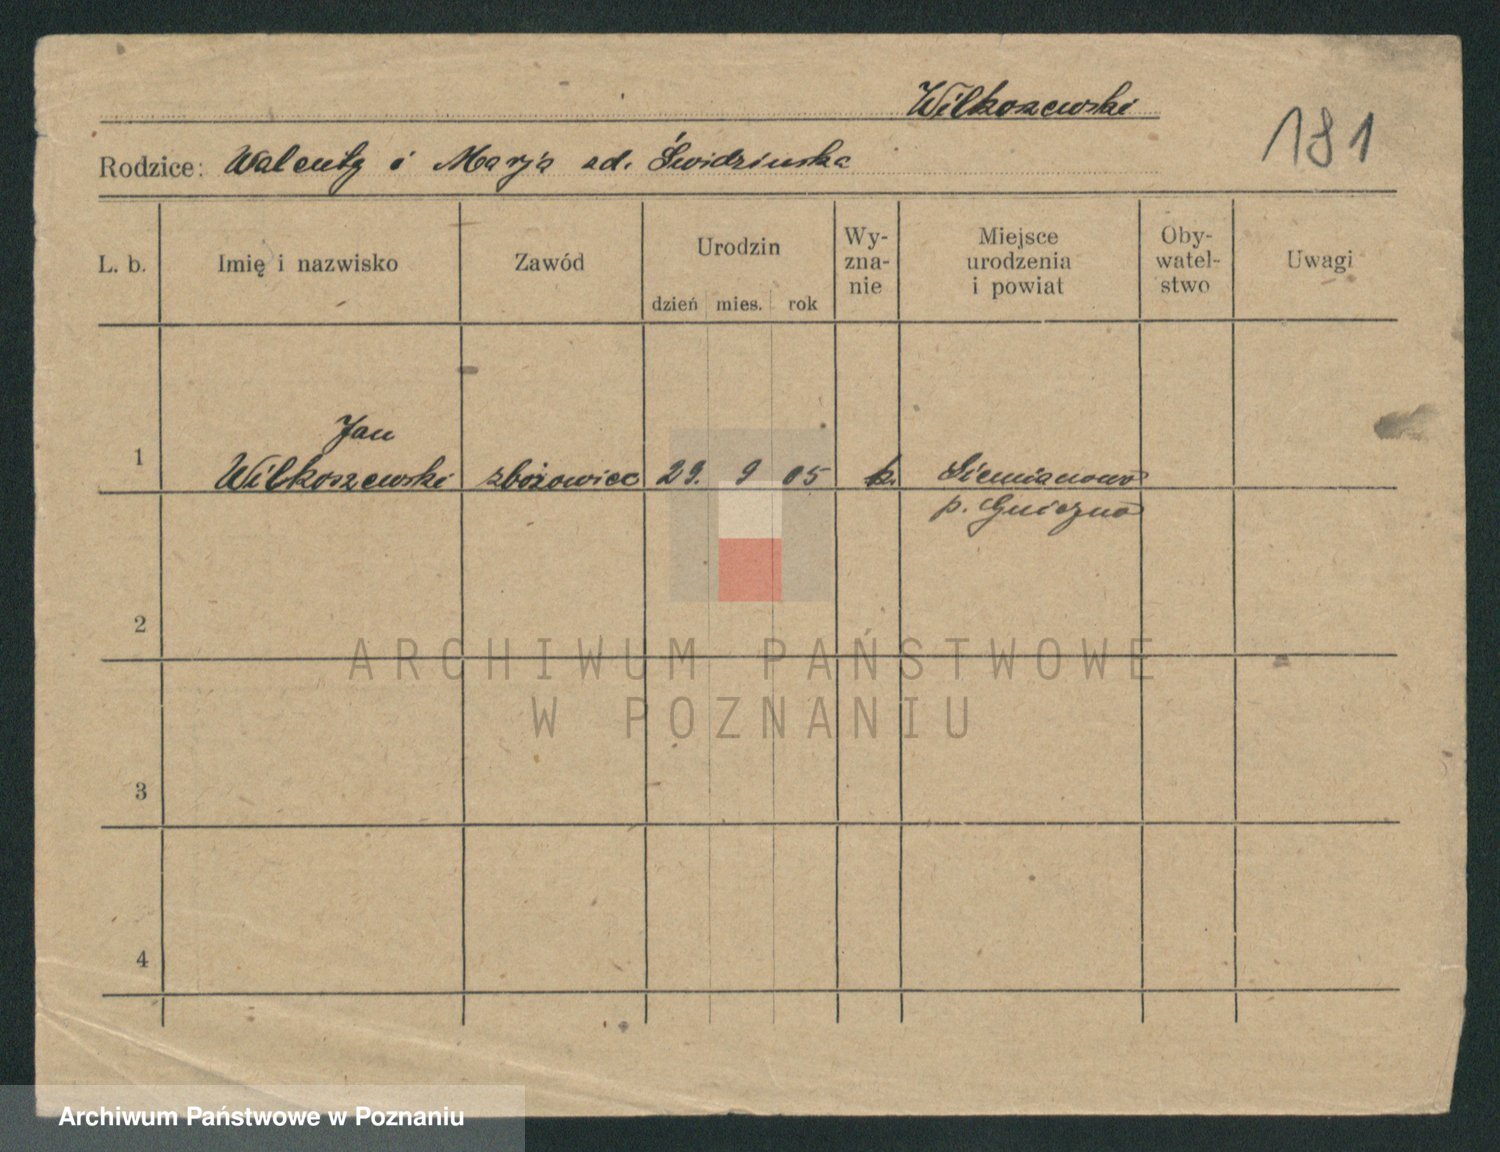 Wilkoszewski
181
Rodzice: Walenty i Marja zd. Świdzińska
L. b.
Imię i nazwisko
Zawód
Urodzin
dzień mies. rok
Wy-
zna-
nie
Miejsce
urodzenia
i powiat
Oby-
watel-
stwo
Uwagi
1
Jan
Wilkoszewski
zbożowiec
29. 9 05
k.
Siemianowo
p. Gniezno
2
3
4
ARCHIWUM PAŃSTWOWE
W POZNANIU
Archiwum Państwowe w Poznaniu